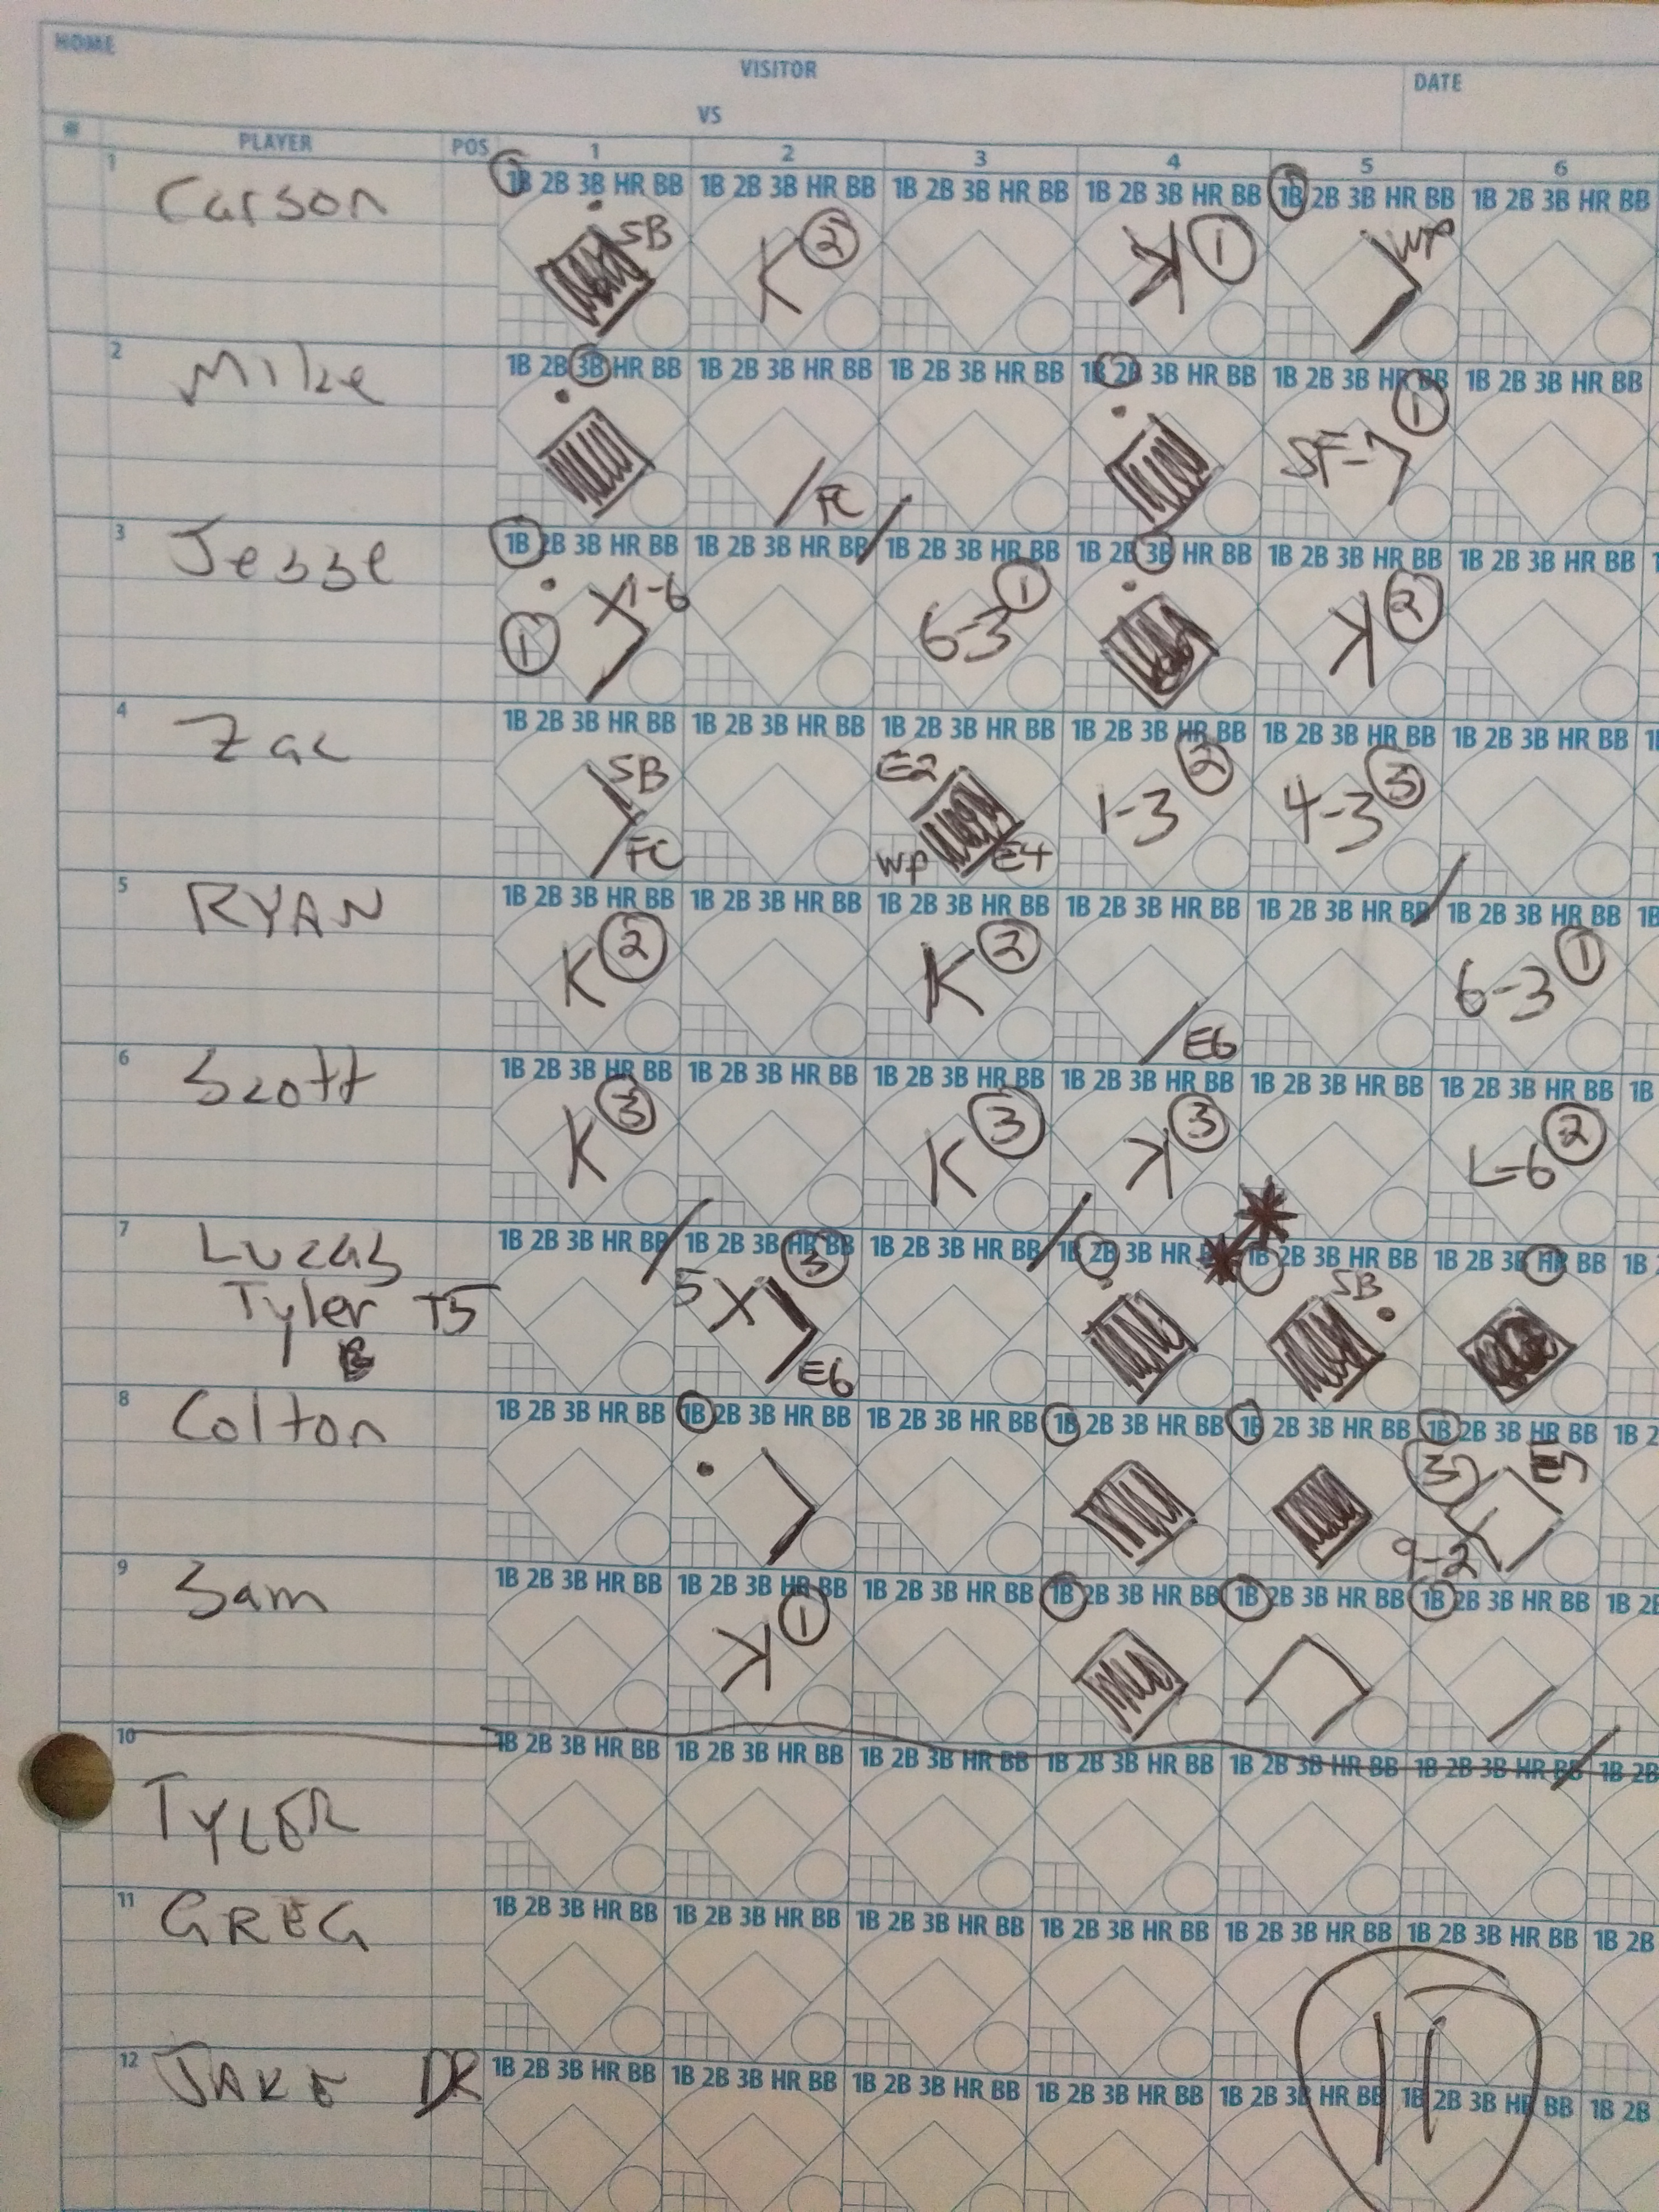 HOME
VISITOR
DATE
VS
# PLAYER POS 1 2 3 4 5 6
1 Carson 1B 2B 3B HR BB 1B 2B 3B HR BB 1B 2B 3B HR BB 1B 2B 3B HR BB 1B 2B 3B HR BB 1B 2B 3B HR BB
SB K 2 K 1 WP
2 Mike 1B 2B 3B HR BB 1B 2B 3B HR BB 1B 2B 3B HR BB 1B 2B 3B HR BB 1B 2B 3B HR BB 1B 2B 3B HR BB
FC SF-7 1
3 Jesse 1B 2B 3B HR BB 1B 2B 3B HR BB 1B 2B 3B HR BB 1B 2B 3B HR BB 1B 2B 3B HR BB 1B 2B 3B HR BB
1 1-6 6-3 1 K 2
4 Zac 1B 2B 3B HR BB 1B 2B 3B HR BB 1B 2B 3B HR BB 1B 2B 3B HR BB 1B 2B 3B HR BB 1B 2B 3B HR BB
SB FC E2 WP E4 1-3 2 4-3 3
5 RYAN 1B 2B 3B HR BB 1B 2B 3B HR BB 1B 2B 3B HR BB 1B 2B 3B HR BB 1B 2B 3B HR BB 1B 2B 3B HR BB 1B
K 2 K 2 E6 6-3 1
6 Scott 1B 2B 3B HR BB 1B 2B 3B HR BB 1B 2B 3B HR BB 1B 2B 3B HR BB 1B 2B 3B HR BB 1B 2B 3B HR BB 1B
K 3 K 3 K 3 L-6 2
7 Lucas 1B 2B 3B HR BB 1B 2B 3B HR BB 1B 2B 3B HR BB 1B 2B 3B HR 1B 2B 3B HR BB 1B 2B 3B HR BB 1B
Tyler T5 5 3 E6 SB
B
8 Colton 1B 2B 3B HR BB 1B 2B 3B HR BB 1B 2B 3B HR BB 1B 2B 3B HR BB 1B 2B 3B HR BB 1B 2B 3B HR BB 1B 2
3 9-2
9 Sam 1B 2B 3B HR BB 1B 2B 3B HR BB 1B 2B 3B HR BB 1B 2B 3B HR BB 1B 2B 3B HR BB 1B 2B 3B HR BB 1B 2B
K 1
10 TYLER 1B 2B 3B HR BB 1B 2B 3B HR BB 1B 2B 3B HR BB 1B 2B 3B HR BB 1B 2B 3B HR BB 1B 2B 3B HR BB 1B 2B
11 GREG 1B 2B 3B HR BB 1B 2B 3B HR BB 1B 2B 3B HR BB 1B 2B 3B HR BB 1B 2B 3B HR BB 1B 2B 3B HR BB 1B 2B
11
12 JAKE DR 1B 2B 3B HR BB 1B 2B 3B HR BB 1B 2B 3B HR BB 1B 2B 3B HR BB 1B 2B 3B HR BB 1B 2B 3B HR BB 1B 2B